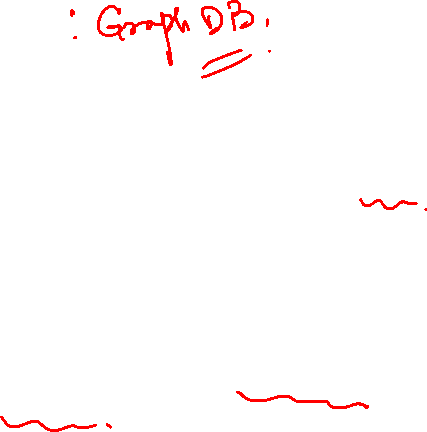 : Graph DB.